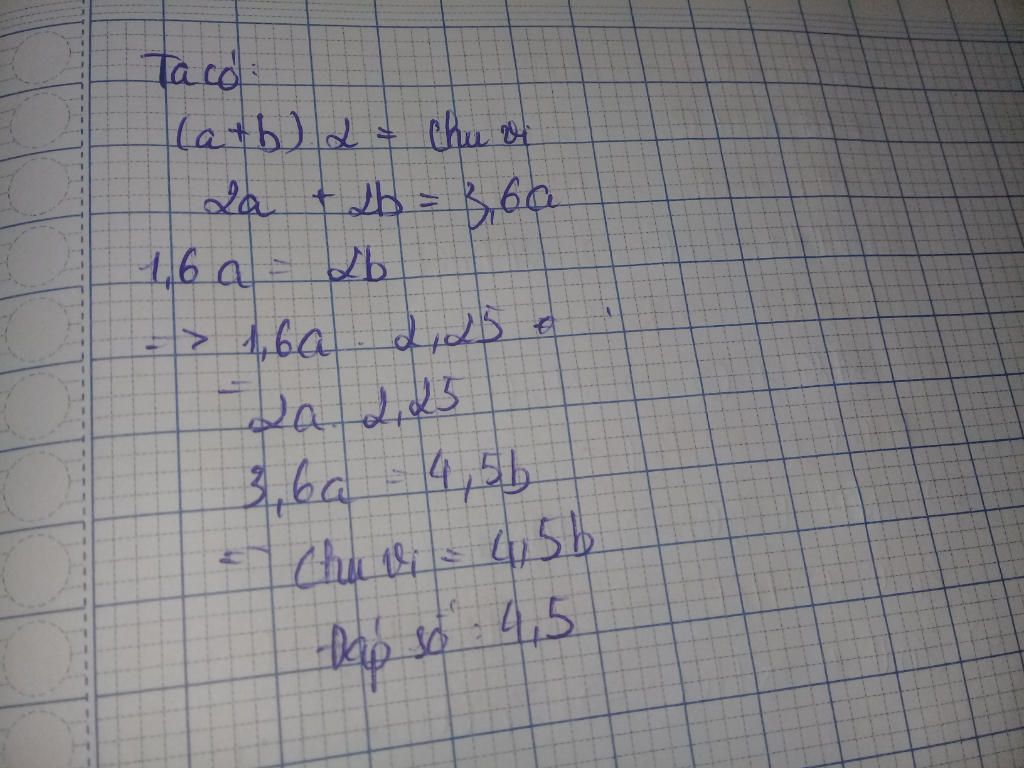 Ta có:
(a+b). 2 = chu vi
2a + 2b = 3,6a
1,6a = 2b
-> 1,6a . 2,25
= 2a . 2,25
3,6a = 4,5b
= Chu vi = 4,5b
Đáp số: 4,5